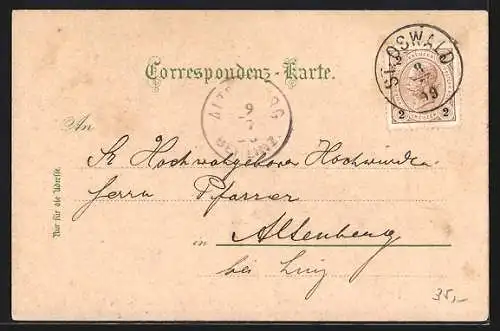 ST. OSWALD
8
99
2 2
Correspondenz-Karte.
ALTENBERG
9
7
BEI LINZ.
An
Sr Hochwohlgeboren Hochwürden
Herrn Pfarrer
in Altenberg
bei Linz
Nur für die Adresse.
35,-